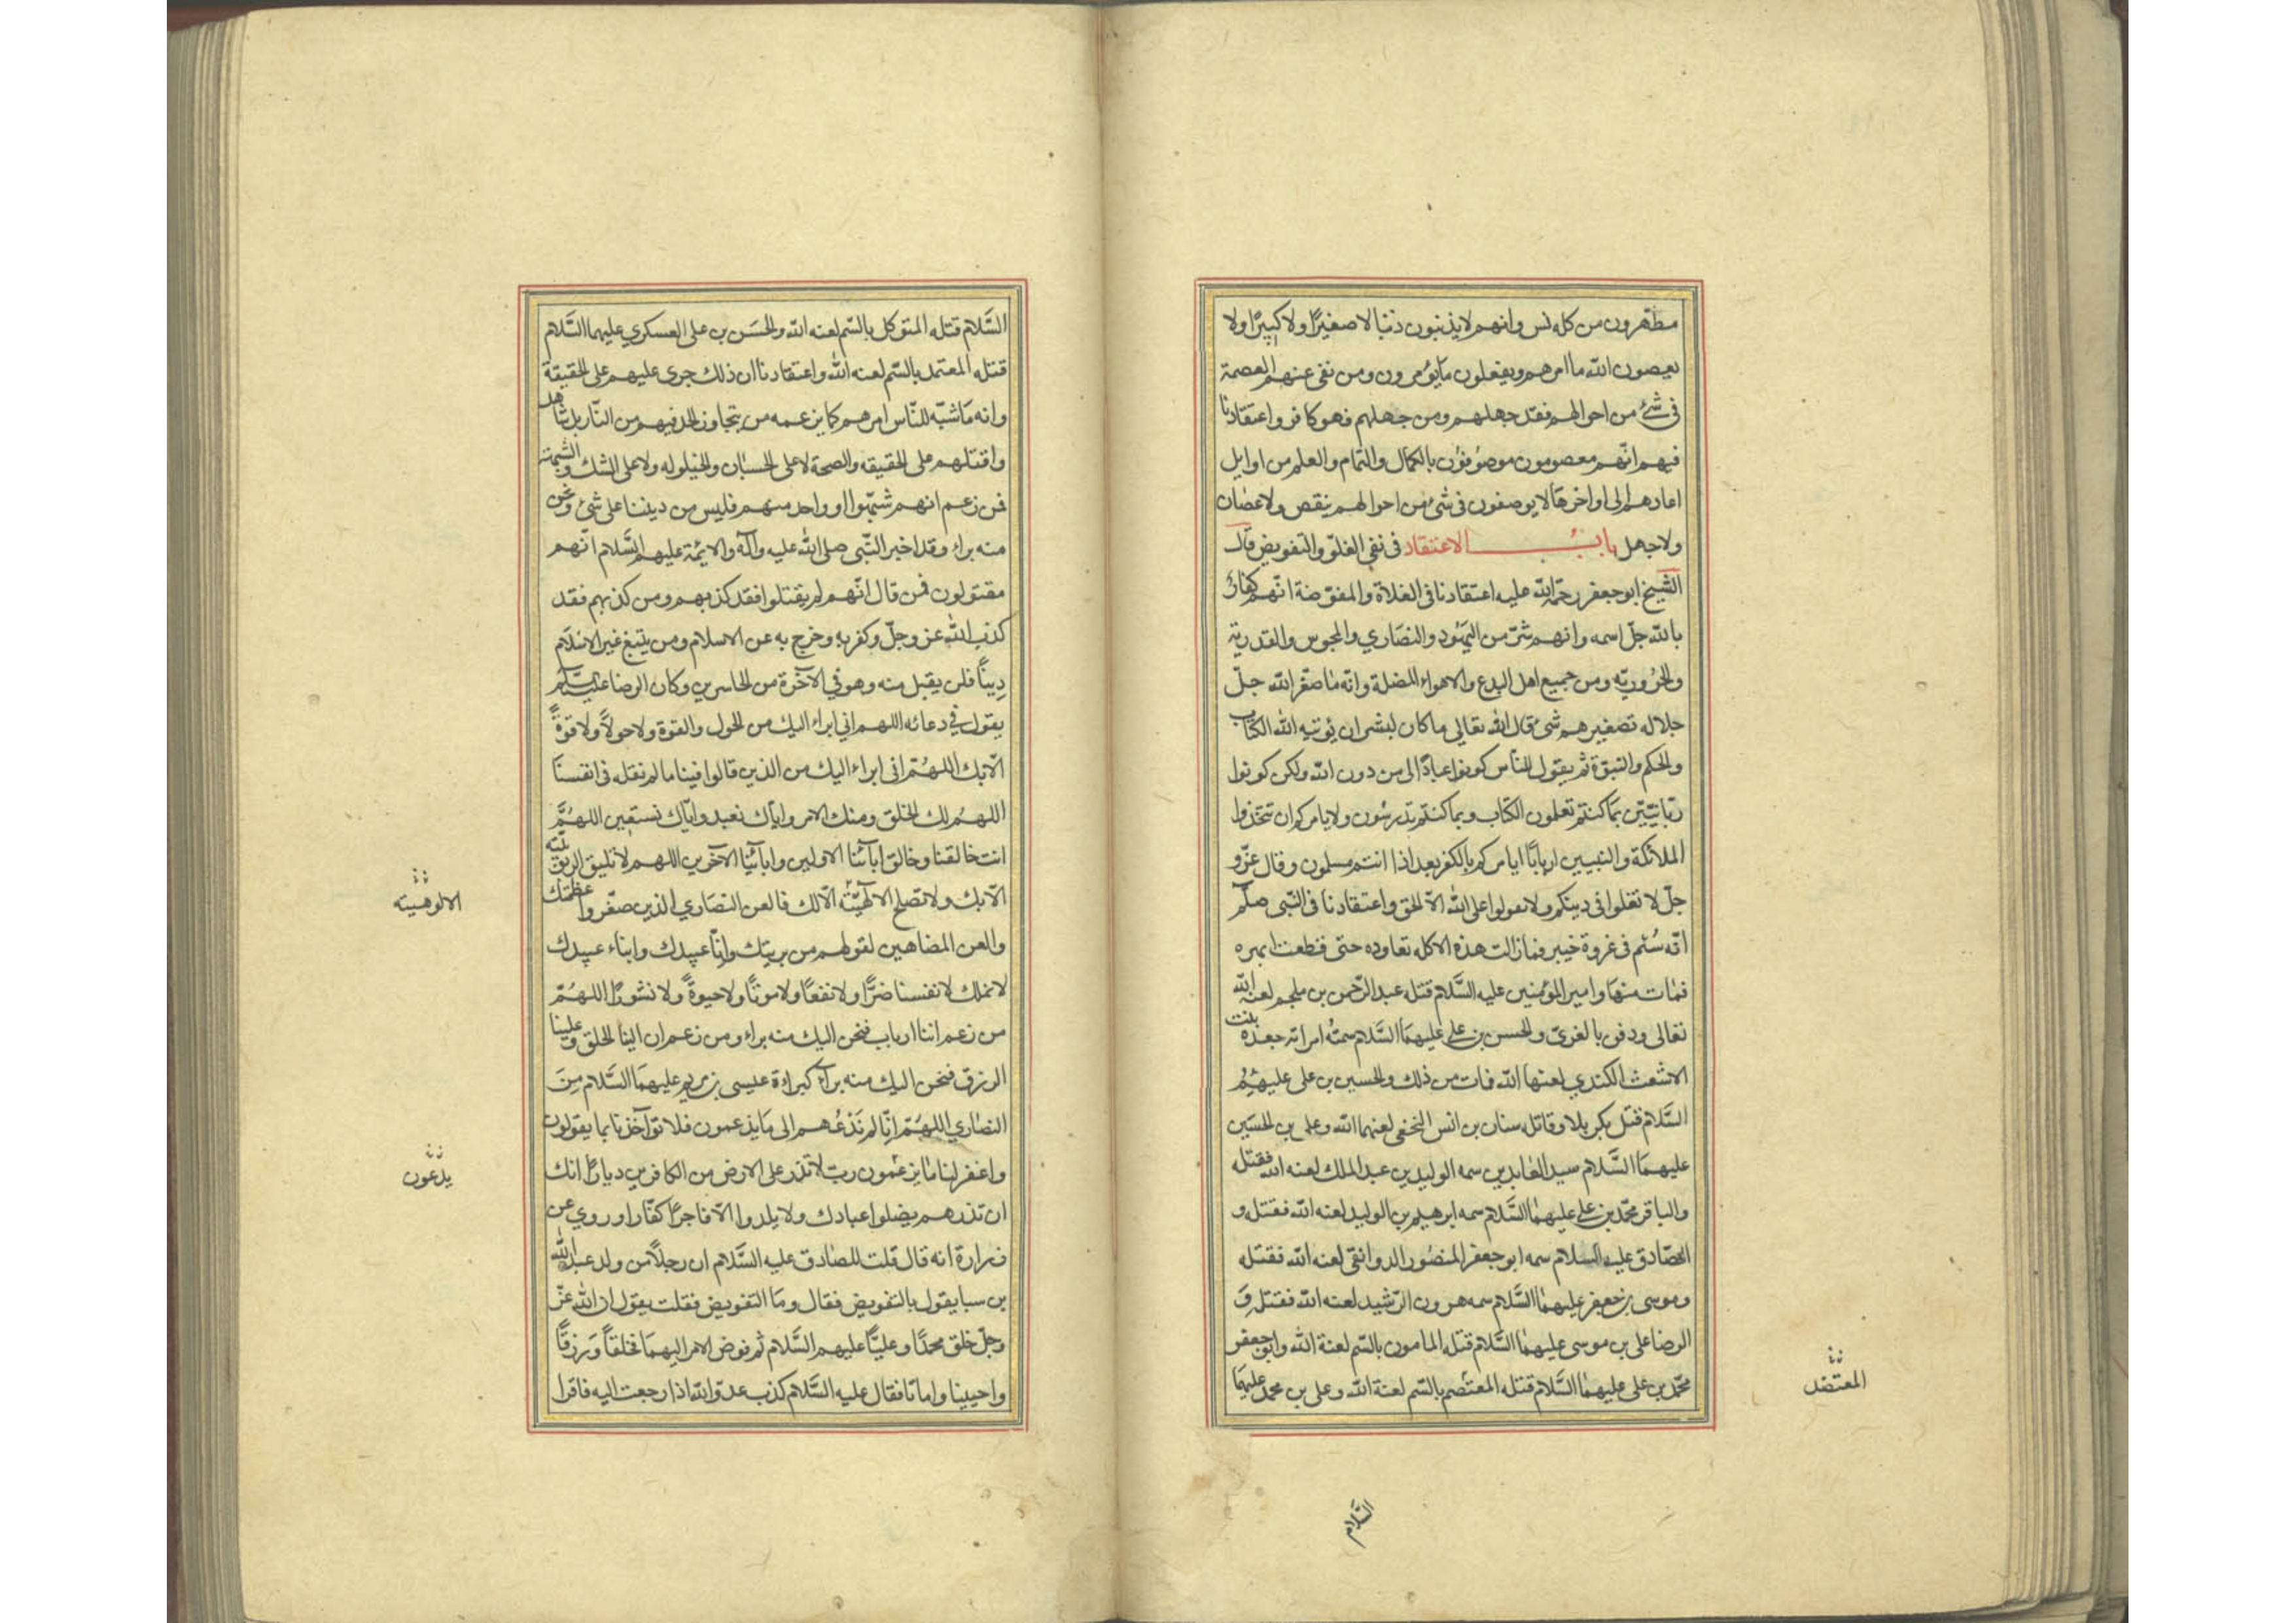 مطهرون من كل دنس وانهم لا يذنبون ذنبا لا صغيرًا ولا كبيرًا ولا
يعصون الله ما امرهم ويفعلون ما يؤمرون ومن نفى عنهم العصمة
فى شئ من احوالهم فقد جهلهم ومن جهلهم فهو كافر واعتقادنا
فيهم انّهم معصومون موصوفون بالكمال والتمام والعلم من اوايل
امارهم الى اواخرها لا يوصفون فى شئ من احوالهم بنقص ولا عصيان
ولا جهل باب الاعتقاد فى نفى الغلوّ والتفويض قال
الشيخ ابو جعفر رحمة الله عليه اعتقادنا فى الغلاة والمفوّضة انّهم كفار
بالله جلّ اسمه وانهم شرّ من اليهود والنصاري والمجوس والقدرية
والحرُوريّه ومن جميع اهل البدع والاهواء المضلة وانّه ما صغّر الله جلّ
جلاله تصغيرهم شئ قال الله تعالي ما كان لبشر ان يؤتيه الله الكتاب
والحكم والنبوّة ثم يقول للناس كونوا عبادًا لى من دون الله ولكن كونوا
ربّانيّين بما كنتم تعلمون الكتاب وبما كنتم تدرسُون ولا يامركم ان تتخذوا
الملائكة والنبيين اربابًا ايامركم بالكفر بعد اذا انتم مسلمون وقال عزّ و
جلّ لا تغلوا فى دينكم ولا تقولوا على الله الاّ الحق واعتقادنا فى النّبى صلّم
انّه سُمّ فى غروة خيبر فما زالت هذه الاكله تعاوده حتى قطعت ابهره
فمات منها وامير المؤمنين عليه السَّلام قتله عبد الرّحمن بن ملجم لعنه الله
تعالى ودفن بالغرىّ والحسن بن على عليهما السَّلام سمتهُ امراته جعدة بنت
الاشعث الكندي لعنها الله فمات من ذلك والحسين بن على عليهم
السَّلام قتل بكربلا وقاتله سنان بن انس النخعى لعنهما الله وعلى بن الحسَين
عليهما السَّلام سيد العابدين سمه الوليد بن عبد الملك لعنه الله فقتله
والباقر محمّد بن على عليهما السَّلام سمه ابرهيم بن الوليد لعنه الله فقتله و
الصّادق عليه السلام سمه ابو جعفر المنصُور الدوانقى لعنه الله فقتله
وموسى بن جعفر عليهما السَّلام سمه هرون الرّشيد لعنه الله فقتله وَ
الرضا على بن موسى عليهما السَّلام قتله المامون بالسّم لعنة الله وابو جعفر
محمّد بن على عليهما السَّلام قتله المعتصم بالسّم لعنة الله وعلى بن محمد عليهما
المعتضد
السَّلام
السَّلام قتله المتوكل بالسّم لعنه الله والحسَن بن على العسكري عليهما السَّلام
قتله المعتمد بالسّم لعنه الله واعتقادنا ان ذلك جرى عليهم على الحقيقة
وانه ما شبّه للنّاس امرهم كما يزعمه من يتجاوز الحد فيهم من النّار بل شاهد
وا قتلهم على الحقيقه والصحة لا على الحسبان والخيلوله ولا على الشك والشبهة
فمن زعم انهم شبّهوا او واحد منهم فليس من ديننا على شئ ونحن
منه براء وقد اخبر النّبى صلى الله عليه وآله والايمّة عليهم السَّلام انّهم
مقتولون فمن قال انّهم لم يقتلوا فقد كذبهم ومن كذبهم فقد
كذب الله عز وجلّ وكفر به وخرج به عن الاسلام ومن يتبغ غير الاسلام
دِينًا فلن يقبل منه وهو في الآخرة من الخاسرين وكان الرضا عليه السلام
يقول في دعائه اللهم اني ابراء اليك من الحول والقوة ولا حولاً ولا قوةً
الّا بك اللهُمّ انى ابراء اليك من الذين قالوا فينا ما لم نقله فى انفسنا
اللهُم لك الخلق ومنك الامر واياك نعبد وايّاك نستعين اللهُمَّ
انت خالقنا وخالق ابآئنا الاولين وابآئنا الآخرين اللهم لا تليق الربوبيّة
الّا بك ولا تصلح الالهيّة الّا لك فالعن النصَاري الذين صغّروا عظمتك
والعن المضاهين لقولهم من بريتك وانّا عبيدك وابناء عبيدك
لا نملك لانفسنا ضرًّا ولا نفعًا ولا موتًا ولا حيوةً ولا نشورًا اللهُمّ
من زعم اننا ارباب فنحن اليك منه براء ومن زعم ان الينا الخلق وعلينا
الرزق فنحن اليك منه برآء كبراءة عيسى بن مريم عليهما السَّلام مِنَ
النصَاري اللهُمّ انّا لم نَدْعُهم الى ما يزعمون فلا تؤآخذنا بما يقولون
واغفر لنا ما يزعمون رب لا تذر على الارض من الكافرين ديارًا انك
ان تذرهم يضلوا عبادك ولا يلدوا الّا فاجرًا كفّارا وروي عن
زرارة انه قال قلت للصّادق عليه السَّلام ان رجلاً من ولد عبد الله
بن سبا يقول بالتفويض فقال وما التفويض فقلت يقول ان الله عزّ
وجلّ خلق محمدًا وعليًّا عليهم السَّلام ثم فوض الامر اليهما فخلقاً وَرزقاً
واحيينا واماتا فقال عليه السَّلام كذب عدوّ الله اذا رجعت اليه فاقرا
الالوهيته
يدعون